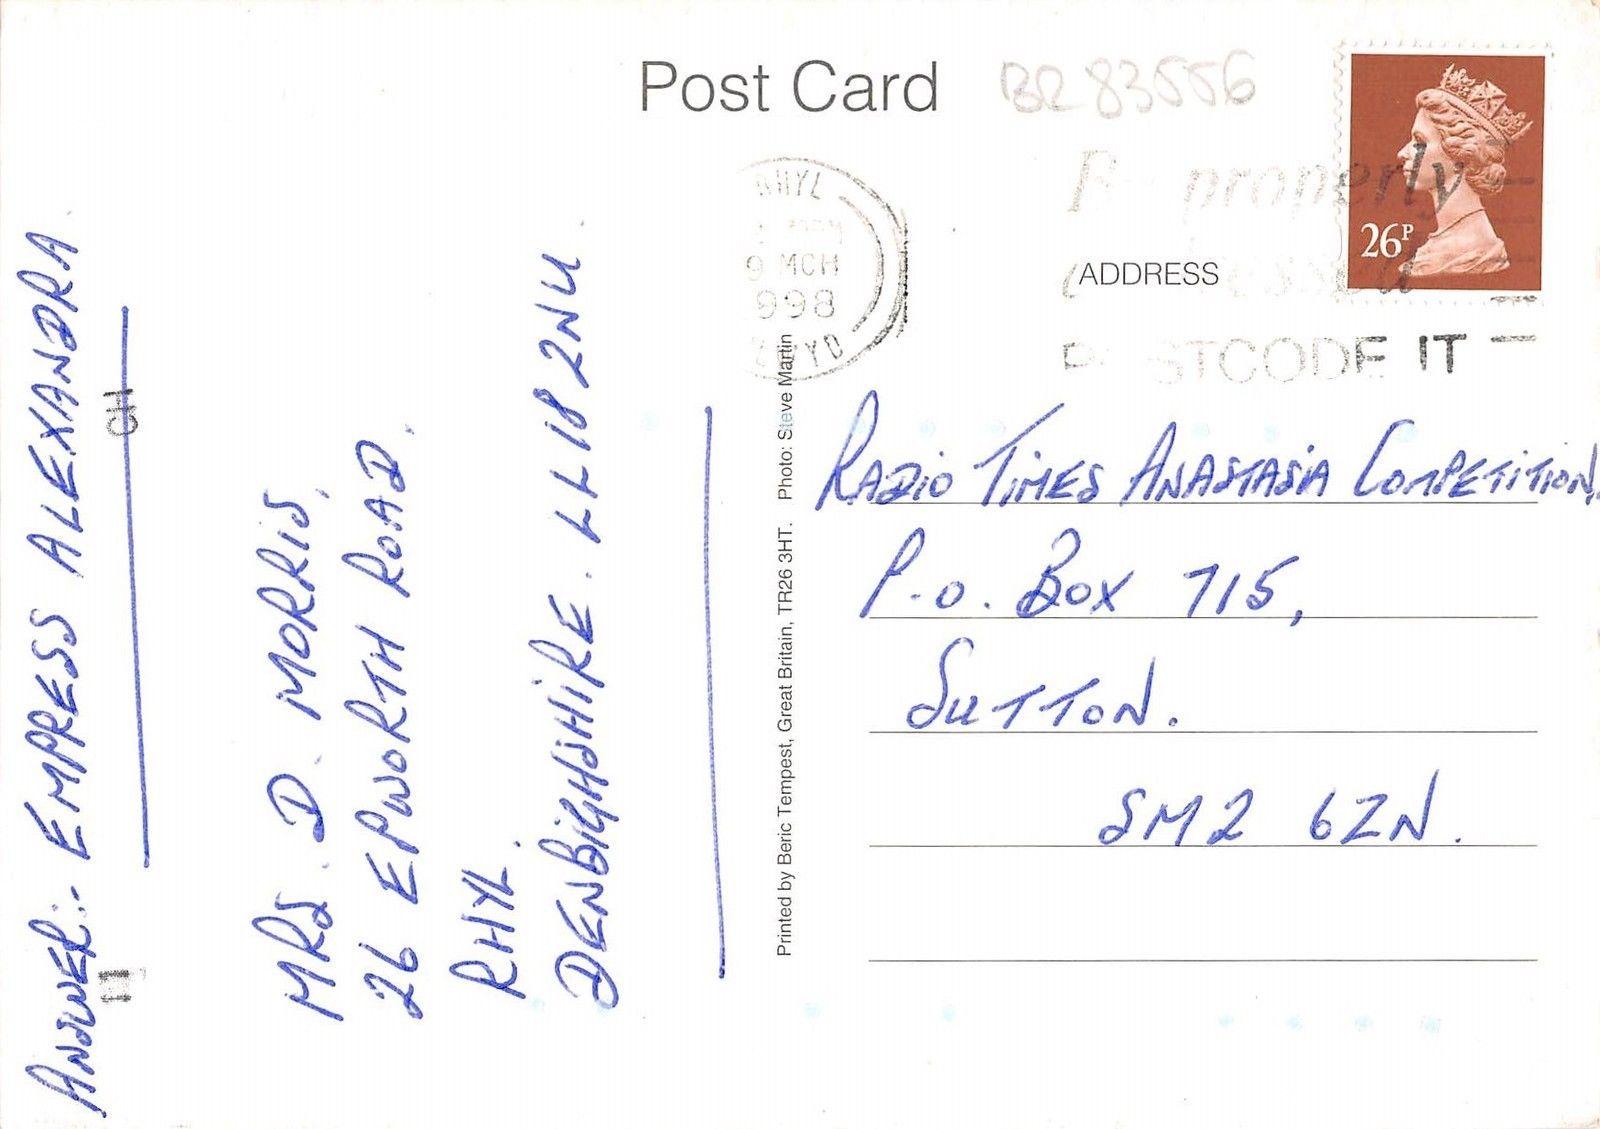 Post Card
BR 83556
RHYL
9 MCH
998
properly
26P
ADDRESS
POSTCODE IT
ANSWER:- EMPRESS ALEXANDRA.
MRS. D. MORRIS,
26 EPWORTH ROAD.
RHYL.
DENBIGHSHIRE. LL18 2NU.
Printed by Beric Tempest, Great Britain, TR26 3HT. Photo: Steve Martin
RADIO TIMES ANASTASIA COMPETITION,
P.O. BOX 715,
SUTTON.
SM2 6ZN.